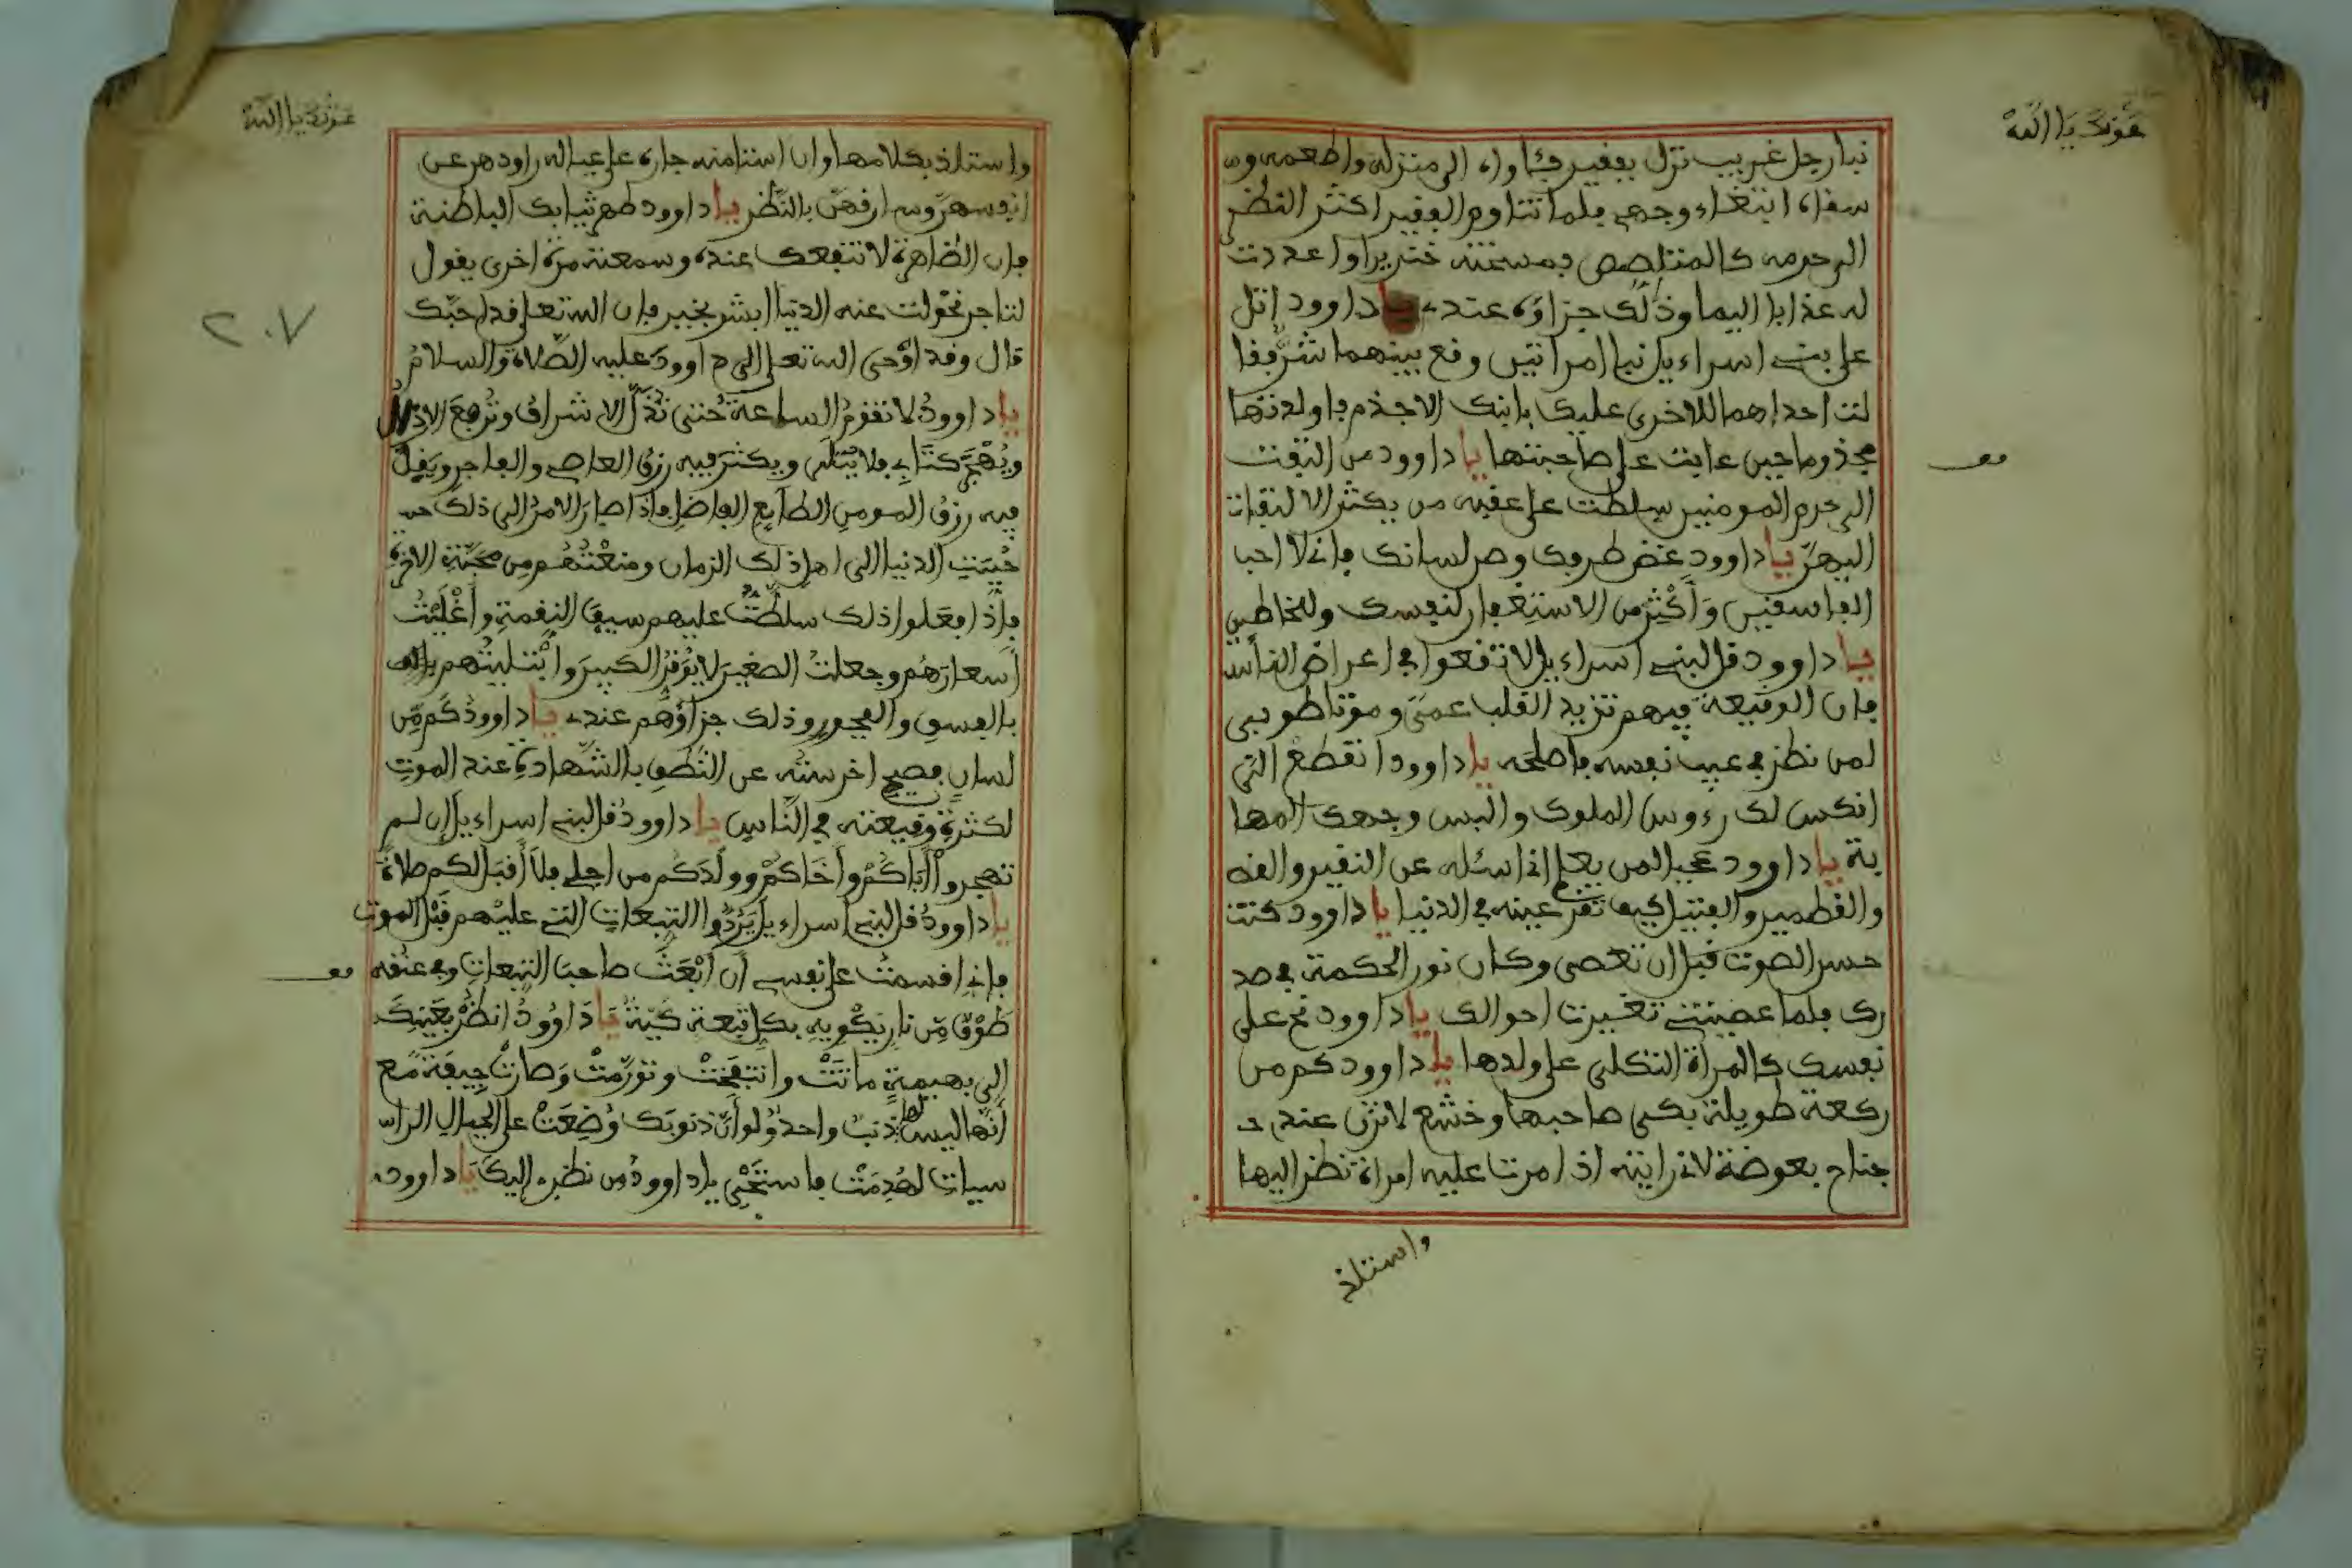 عونك يا الله
نبا رجل غريب نزل بفقير فئاواه الى منزله واطعمه و
سفاه ابتغاء وجهي فلما تناوم الفقير اكثر النظر
الى حرمه كالمتلصص فمسخته خنزيرا واعددت
له عذابا اليما وذلك جزاؤه عندي يا داوود اتل
على بني اسراءيل نبا امراتين وقع بينهما شر فقا
لت احداهما للاخرى عليك بابنك الاجذم فاولدتها
مجذوما حين عايت على صاحبتها يا داوود من التفت
الى حرم المومنين سلطت على عقبه من يكثر الالتفات
اليهن يا داوود غض طرفك وصن لسانك فاني لا احب
الفاسقين وأكثر من الاستغفار لنفسك وللخاطين
يا داوود قل لبني اسراءيل لا تقعوا في اعراض الناس
فان الوقيعة فيهم تزيد القلب عمى وموتا طوبى
لمن نظر في عيب نفسه فاصلحه يا داوود انقطع التي
انكس لك رءوس الملوك والبس وجهك المها
بة يا داوود عجبا لمن يعلم اني اسئله عن النقير و
والقطمير والفتيل كيف تقر عينه في الدنيا يا داوود كنت
حسن الصوت قبل ان تعصى وكان نور الحكمة في صد
رك فلما عصيتني تغيرت احوالك يا داوود نح على
نفسك كالمراة الثكلى على ولدها يا داوود كم من
ركعة طويلة بكى صاحبها وخشع لا تزن عندي
جناح بعوضة لاني رايته اذا مرت عليه امراة نظر اليها
واستلذ
عونك يا الله
٢٠٧
واستلذ بكلامها وان استامنه جاره على عياله راودهن عن
انفسهن وسارقهن بالنظر يا داوود طهر ثيابك الباطنة
فان الظاهرة لا تنفعك عندي وسمعته مرة اخرى يقول
لتاجر تحولت عنه الدنيا ابشر بخير فان الله تعلى قد احبك
قال وقد اوحى الله تعلى الى داوود عليه الصلاة والسلام
يا داوود لا تقوم الساعة حتى تذل الاشراف وترفع الاذال
ويهجر كتابي فلا يتلى ويكثر فيه رزق العاصي والفاجر ويقل
فيه رزق المومن الطايع الفاضل فاذا صار الامر الى ذلك
حببت الدنيا الى اهل ذلك الزمان ومنعتهم من محبة الاخرة
فاذا فعلوا ذلك سلطت عليهم سيف النقمة واغليت
أسعارهم وجعلت الصغير لا يوقر الكبير وابتليتهم
بالفسق والفجور وذلك جزاؤهم عندي يا داوود كم من
لسان فصيح اخرسته عن النطق بالشهادة عند الموت
لكثرة وقيعته في الناس يا داوود قل لبني اسراءيل إن لم
تهجروا أباكم وأخاكم وولدكم من اجلي فلا أقبل لكم صلاة
يا داوود قل لبني اسراءيل يردوا التبعات التي عليهم قبل الموت
فاني اقسمت على نفسي أن أبعث صاحب التبعات وفي عنقه
طوق من نار يكويه بكل تبعة كية يا داوود انظر بعينك
الى بهيمة ماتت وانتفخت وتورمت وصارت جيفة مع
أنها ليس لها ذنب واحد ولو أن ذنوبك وضعت على الجبال الراس
سيات لهدمت فاستحي يا داوود من نظري إليك يا داوود